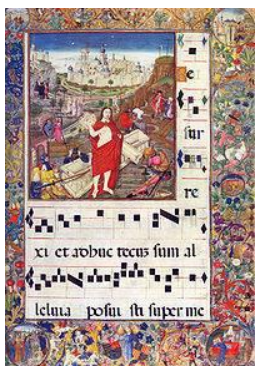 R
e
sur
re
xi et adhuc tecuz sum al
leluia posui sti super me